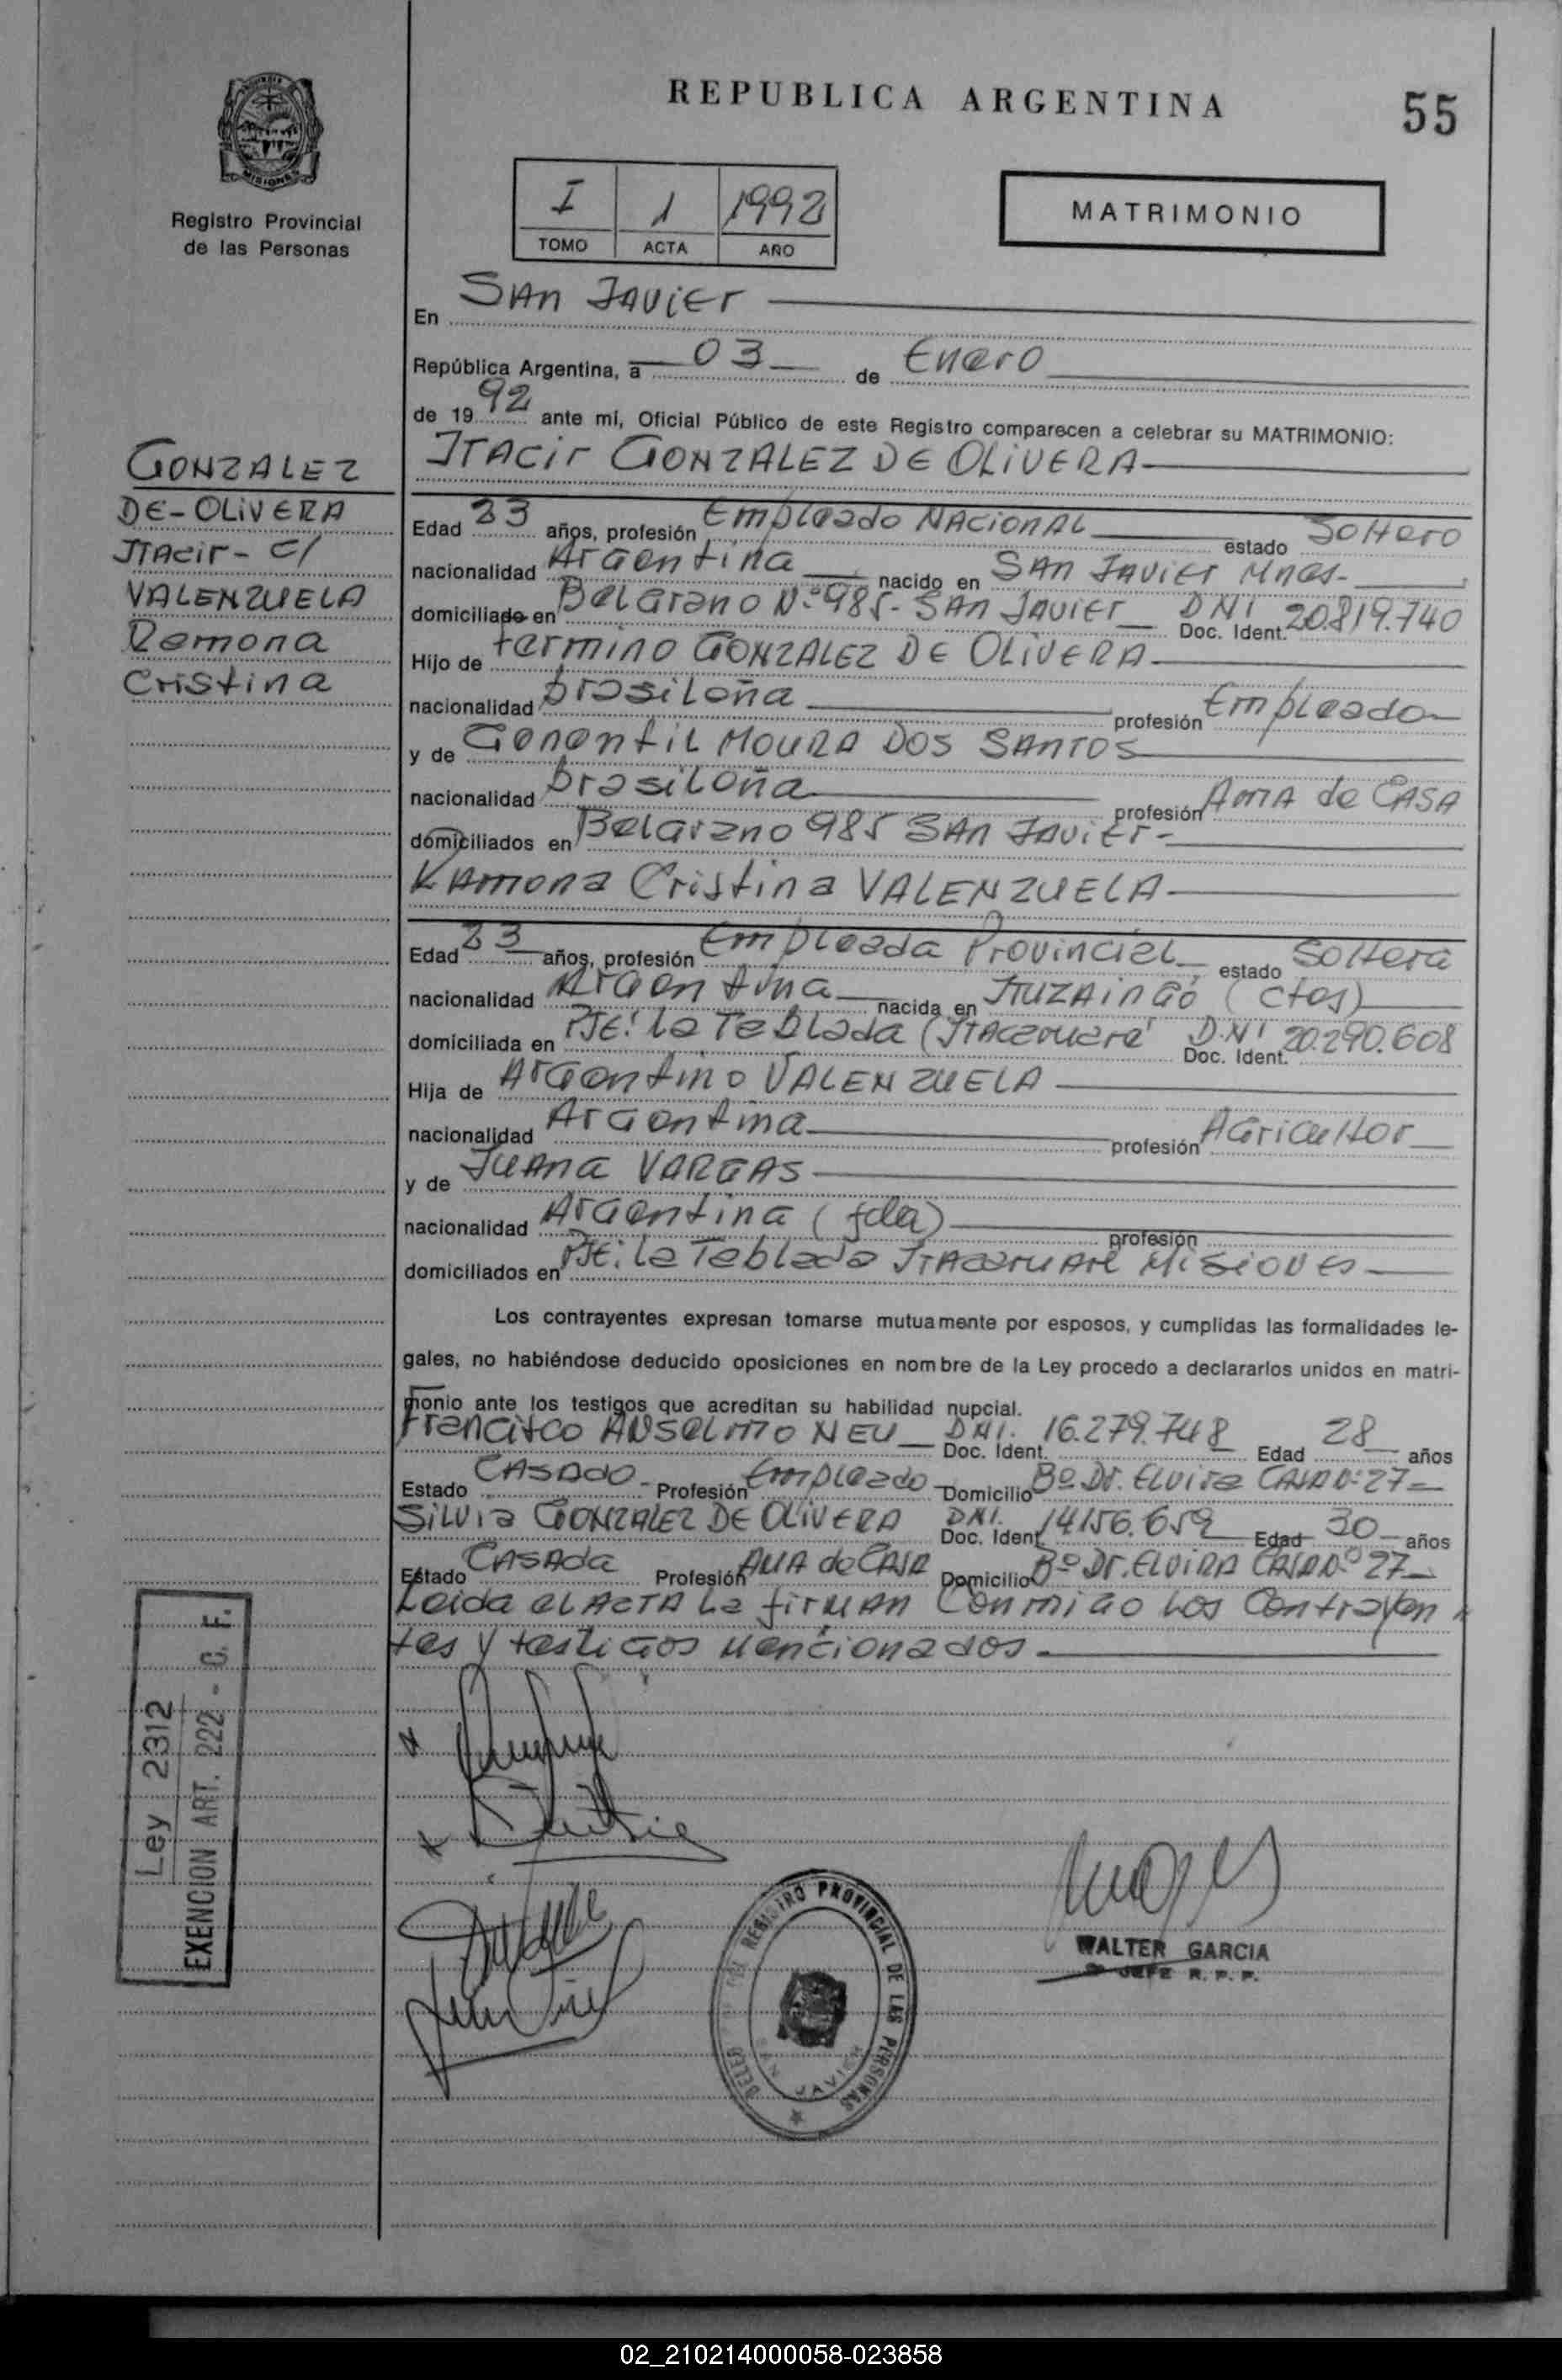 REPUBLICA ARGENTINA
55
MISIONES
Registro Provincial
de las Personas
I 1 1992
TOMO ACTA AÑO
MATRIMONIO
GONZALEZ
DE-OLIVERA
ITAcir- c/
VALENZUELA
Ramona
Cristina
En SAn JAVIEr
República Argentina, a 03 de Enero
de 19 92 ante mí, Oficial Público de este Registro comparecen a celebrar su MATRIMONIO:
ITACir GONZALEZ DE OLIVERA
Edad 23 años, profesión Empleado NACionAL estado SoLtero
nacionalidad Argentina nacido en SAn JAVIEr Mnes.
domiciliado en Belgrano N°985- SAn JAVIEr Doc. Ident. DNI 20.819.740
Hijo de fermino GONZALEZ DE OLIVERA
nacionalidad brasileña profesión Empleado
y de Genentil MOURA DOS SANTOS
nacionalidad brasileña profesión AmA de CASA
domiciliados en Belgrano 985 SAn JAVIEr-
RAmona Cristina VALENZUELA
Edad 23 años, profesión Empleada Provincial estado SoLtera
nacionalidad Argentina nacida en ITUZAingó (ctes)
domiciliada en PJE: La Tablada (ITAcaruaré Doc. Ident. D.NI 20.290.608
Hija de Argentino VALENZUELA
nacionalidad Argentina profesión AGricultor
y de JuAna VARGAS
nacionalidad Argentina (fda) profesión
domiciliados en PJE: La Tablada ITAcaruAré MisioNes
Los contrayentes expresan tomarse mutuamente por esposos, y cumplidas las formalidades le-
gales, no habiéndose deducido oposiciones en nombre de la Ley procedo a declararlos unidos en matri-
monio ante los testigos que acreditan su habilidad nupcial.
Francisco ANSELMO NEU Doc. Ident. DNI. 16.279.748 Edad 28 años
Estado CASADO Profesión Empleado Domicilio B° Dr. Elvira CASA N° 27
Silvia GONZALEZ DE OLIVERA Doc. Ident. DNI. 14.156.659 Edad 30 años
Estado CASAda Profesión AMA de CASA Domicilio B° Dr. ELVIRA CASA N° 27
Leida el ACTA La firmAn Conmigo Los Contrayen
tes y testigos Mencionados.
Ley 2312
EXENCION ART. 222 - C. F.
REGISTRO PROVINCIAL DE LAS PERSONAS
SAN JAVIER
WALTER GARCIA
JEFE R. P. P.
02_210214000058-023858